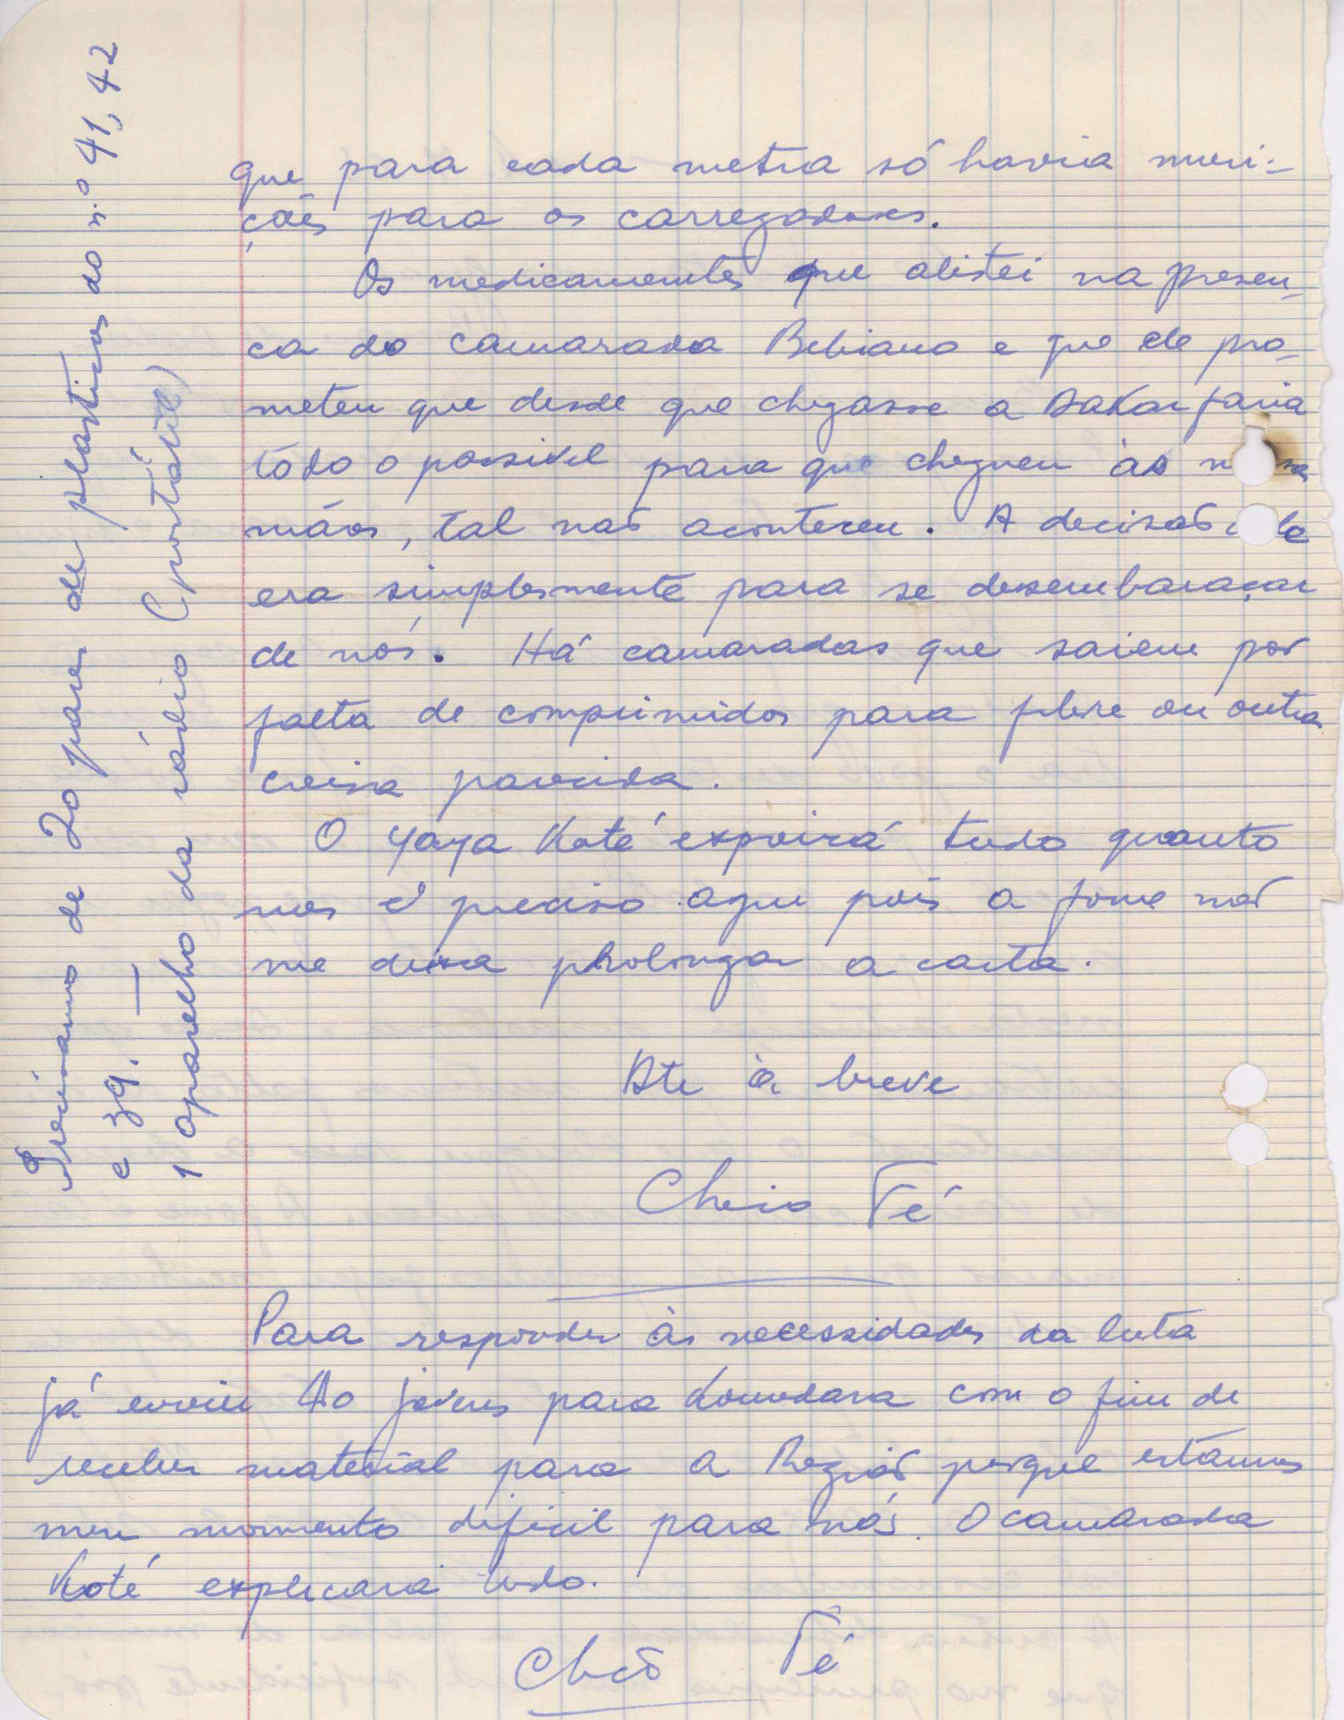 que para cada metra só havia muni-
ções para os carregadores.
Os medicamentos que alistei na presen-
ca do camarada Bebiano e que ele pro-
meteu que desde que chegasse a Dakar faria
tôdo o possivel para que cheguem às
mãos, tal não aconteceu. A decisão
era simplesmente para se desembaraçar
de nós. Há camaradas que saiem por
falta de comprimidos para febre ou outra
coisa parecida.
O Yaya Koté expoirá tudo quanto
nos é preciso aqui pois a fome não
me deixa prolongar a carta.
Ate à breve
Cheio Té
Para responder às necessidades da luta
já enviei 40 jovens para Koundara com o fim de
receber material para a Região porque estamos
num momento dificil para nós. O camarada
Koté explicará tudo.
Té
Precisamos de 20 pares de plasticos do n.º 41, 42
e 39. —
1 aparelho da rádio (portátil)